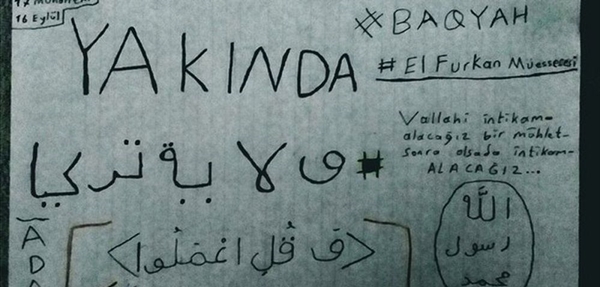 16 Eylül
YAKINDA
#BAQYAH
# El Furkan Müessesesi
Vallahi intikam-
alacağız bir mühlet-
sonra olsada intikam-
ALACAĞIZ...
# ولاية تركيا
قُلِ اعْمَلُوا
الله
رسول
محمد
A
D